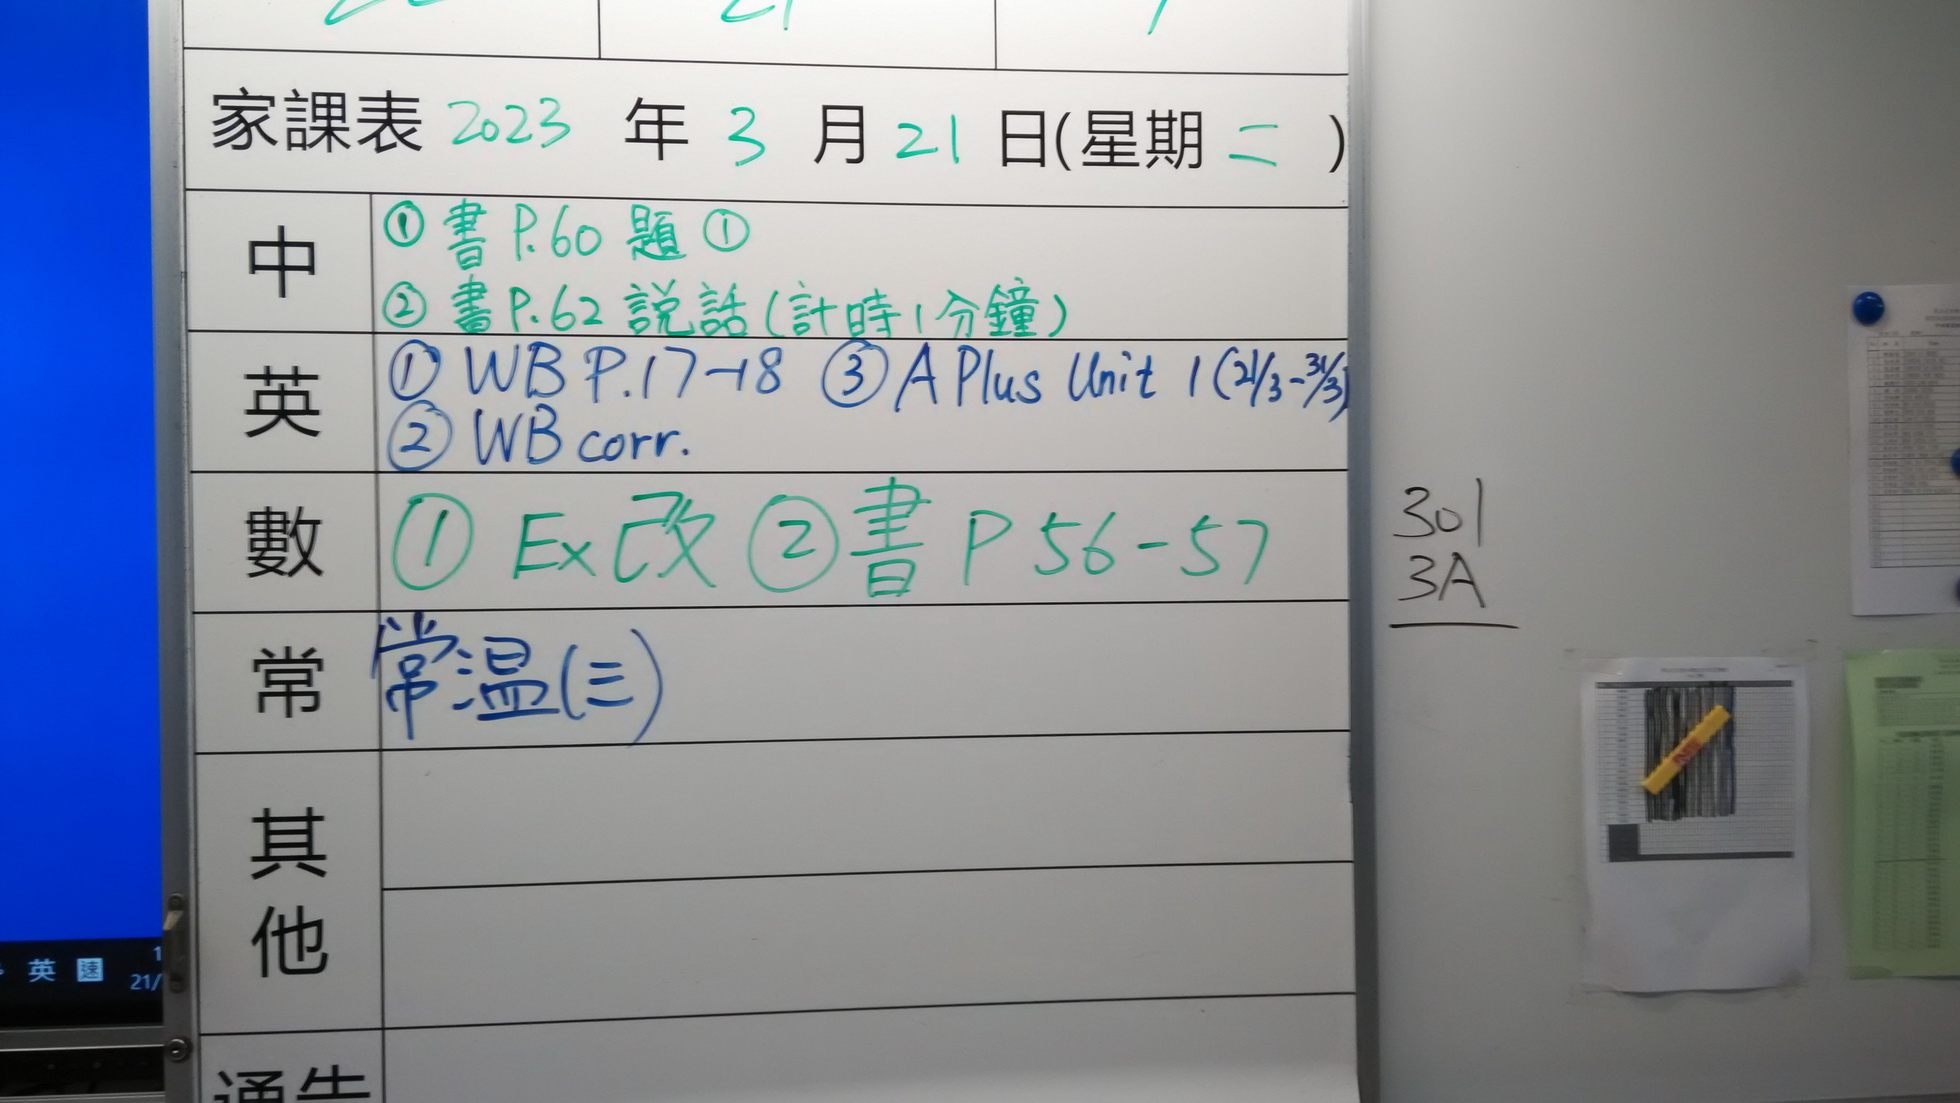 家課表 2023 年 3 月 21 日(星期 二 )
中
① 書 P.60 題 ①
② 書 P.62 説話(計時1分鐘)
英
① WB P.17-18 ③ A Plus Unit 1 (21/3-31/3)
② WB corr.
數
① Ex改 ② 書 P 56-57
常
常温(三)
其
他
通告
301
3A
英 速
21/